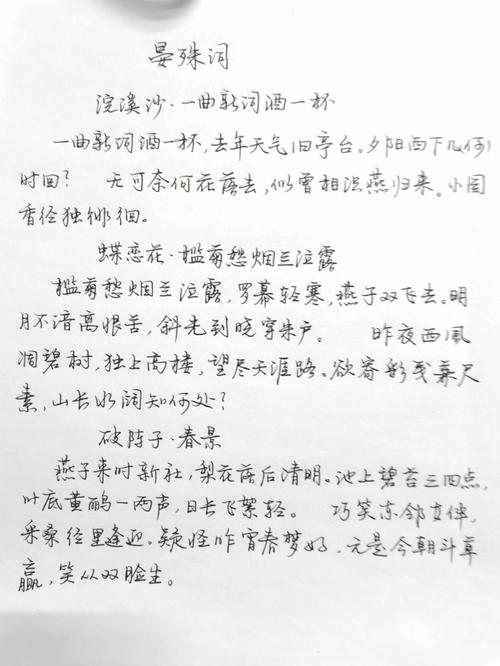 晏殊词
浣溪沙·一曲新词酒一杯
一曲新词酒一杯,去年天气旧亭台。夕阳西下几何
时回？ 无可奈何花落去,似曾相识燕归来。小园
香径独徘徊。
蝶恋花·槛菊愁烟兰泣露
槛菊愁烟兰泣露,罗幕轻寒,燕子双飞去。明
月不谙离恨苦,斜光到晓穿朱户。 昨夜西风
凋碧树,独上高楼,望尽天涯路。欲寄彩笺兼尺
素,山长水阔知何处?
破阵子·春景
燕子来时新社,梨花落后清明。池上碧苔三四点,
叶底黄鹂一两声,日长飞絮轻。 巧笑东邻女伴,
采桑径里逢迎。疑怪昨宵春梦好,元是今朝斗草
赢,笑从双脸生。